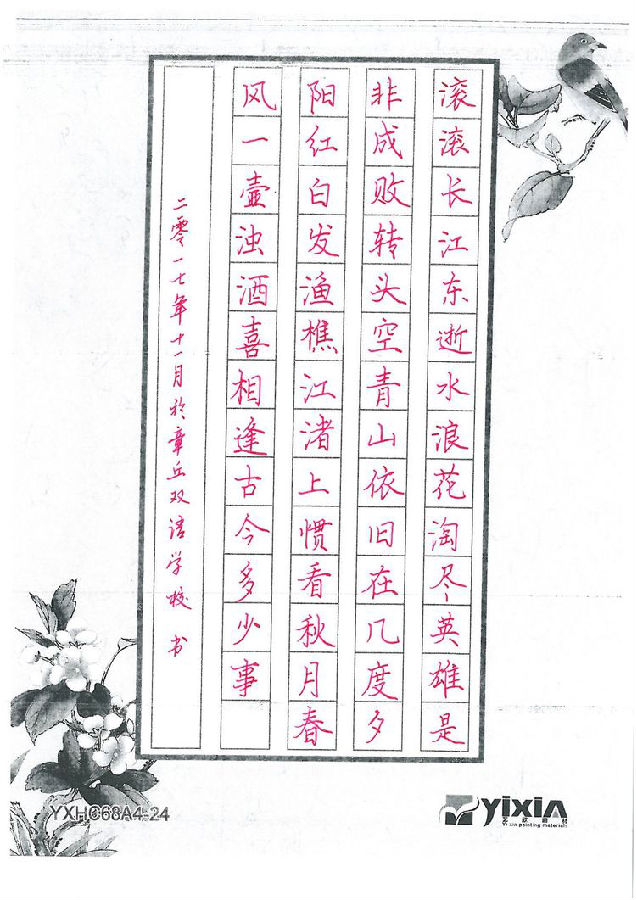 滚滚长江东逝水浪花淘尽英雄是
非成败转头空青山依旧在几度夕
阳红白发渔樵江渚上惯看秋月春
风一壶浊酒喜相逢古今多少事
二零一七年十一月於章丘双语学校 书
YXHC68A4-24
yixin